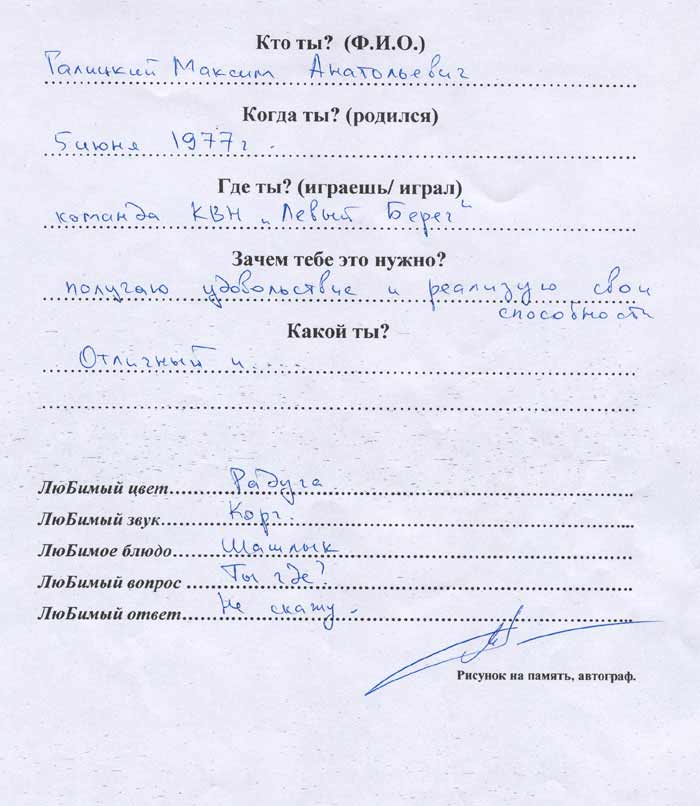 Кто ты? (Ф.И.О.)
Галицкий Максим Анатольевич
Когда ты? (родился)
5 июня 1977 г.
Где ты? (играешь/ играл)
команда КВН „Левый Берег"
Зачем тебе это нужно?
получаю удовольствие и реализую свои
способности
Какой ты?
Отличный и.....
ЛюБимый цвет Радуга
ЛюБимый звук Корг.
ЛюБимое блюдо Шашлык
ЛюБимый вопрос Ты где?
ЛюБимый ответ Не скажу.
Рисунок на память, автограф.